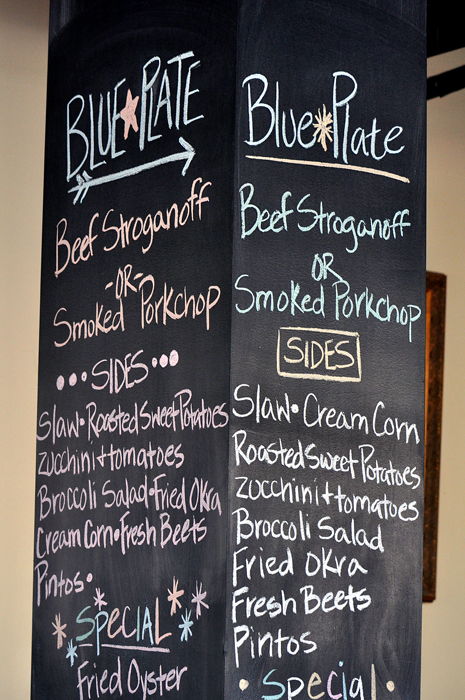 BLUE PLATE
Beef Stroganoff
-OR-
Smoked Porkchop
•••SIDES•••
Slaw•Roasted Sweet Potatoes
zucchini + tomatoes
Broccoli Salad•Fried Okra
Cream Corn•Fresh Beets
Pintos•
SPECIAL
Fried Oyster
Blue Plate
Beef Stroganoff
OR
Smoked Porkchop
SIDES
Slaw•Cream Corn
Roasted Sweet Potatoes
zucchini + tomatoes
Broccoli Salad
Fried Okra
Fresh Beets
Pintos
•Special•